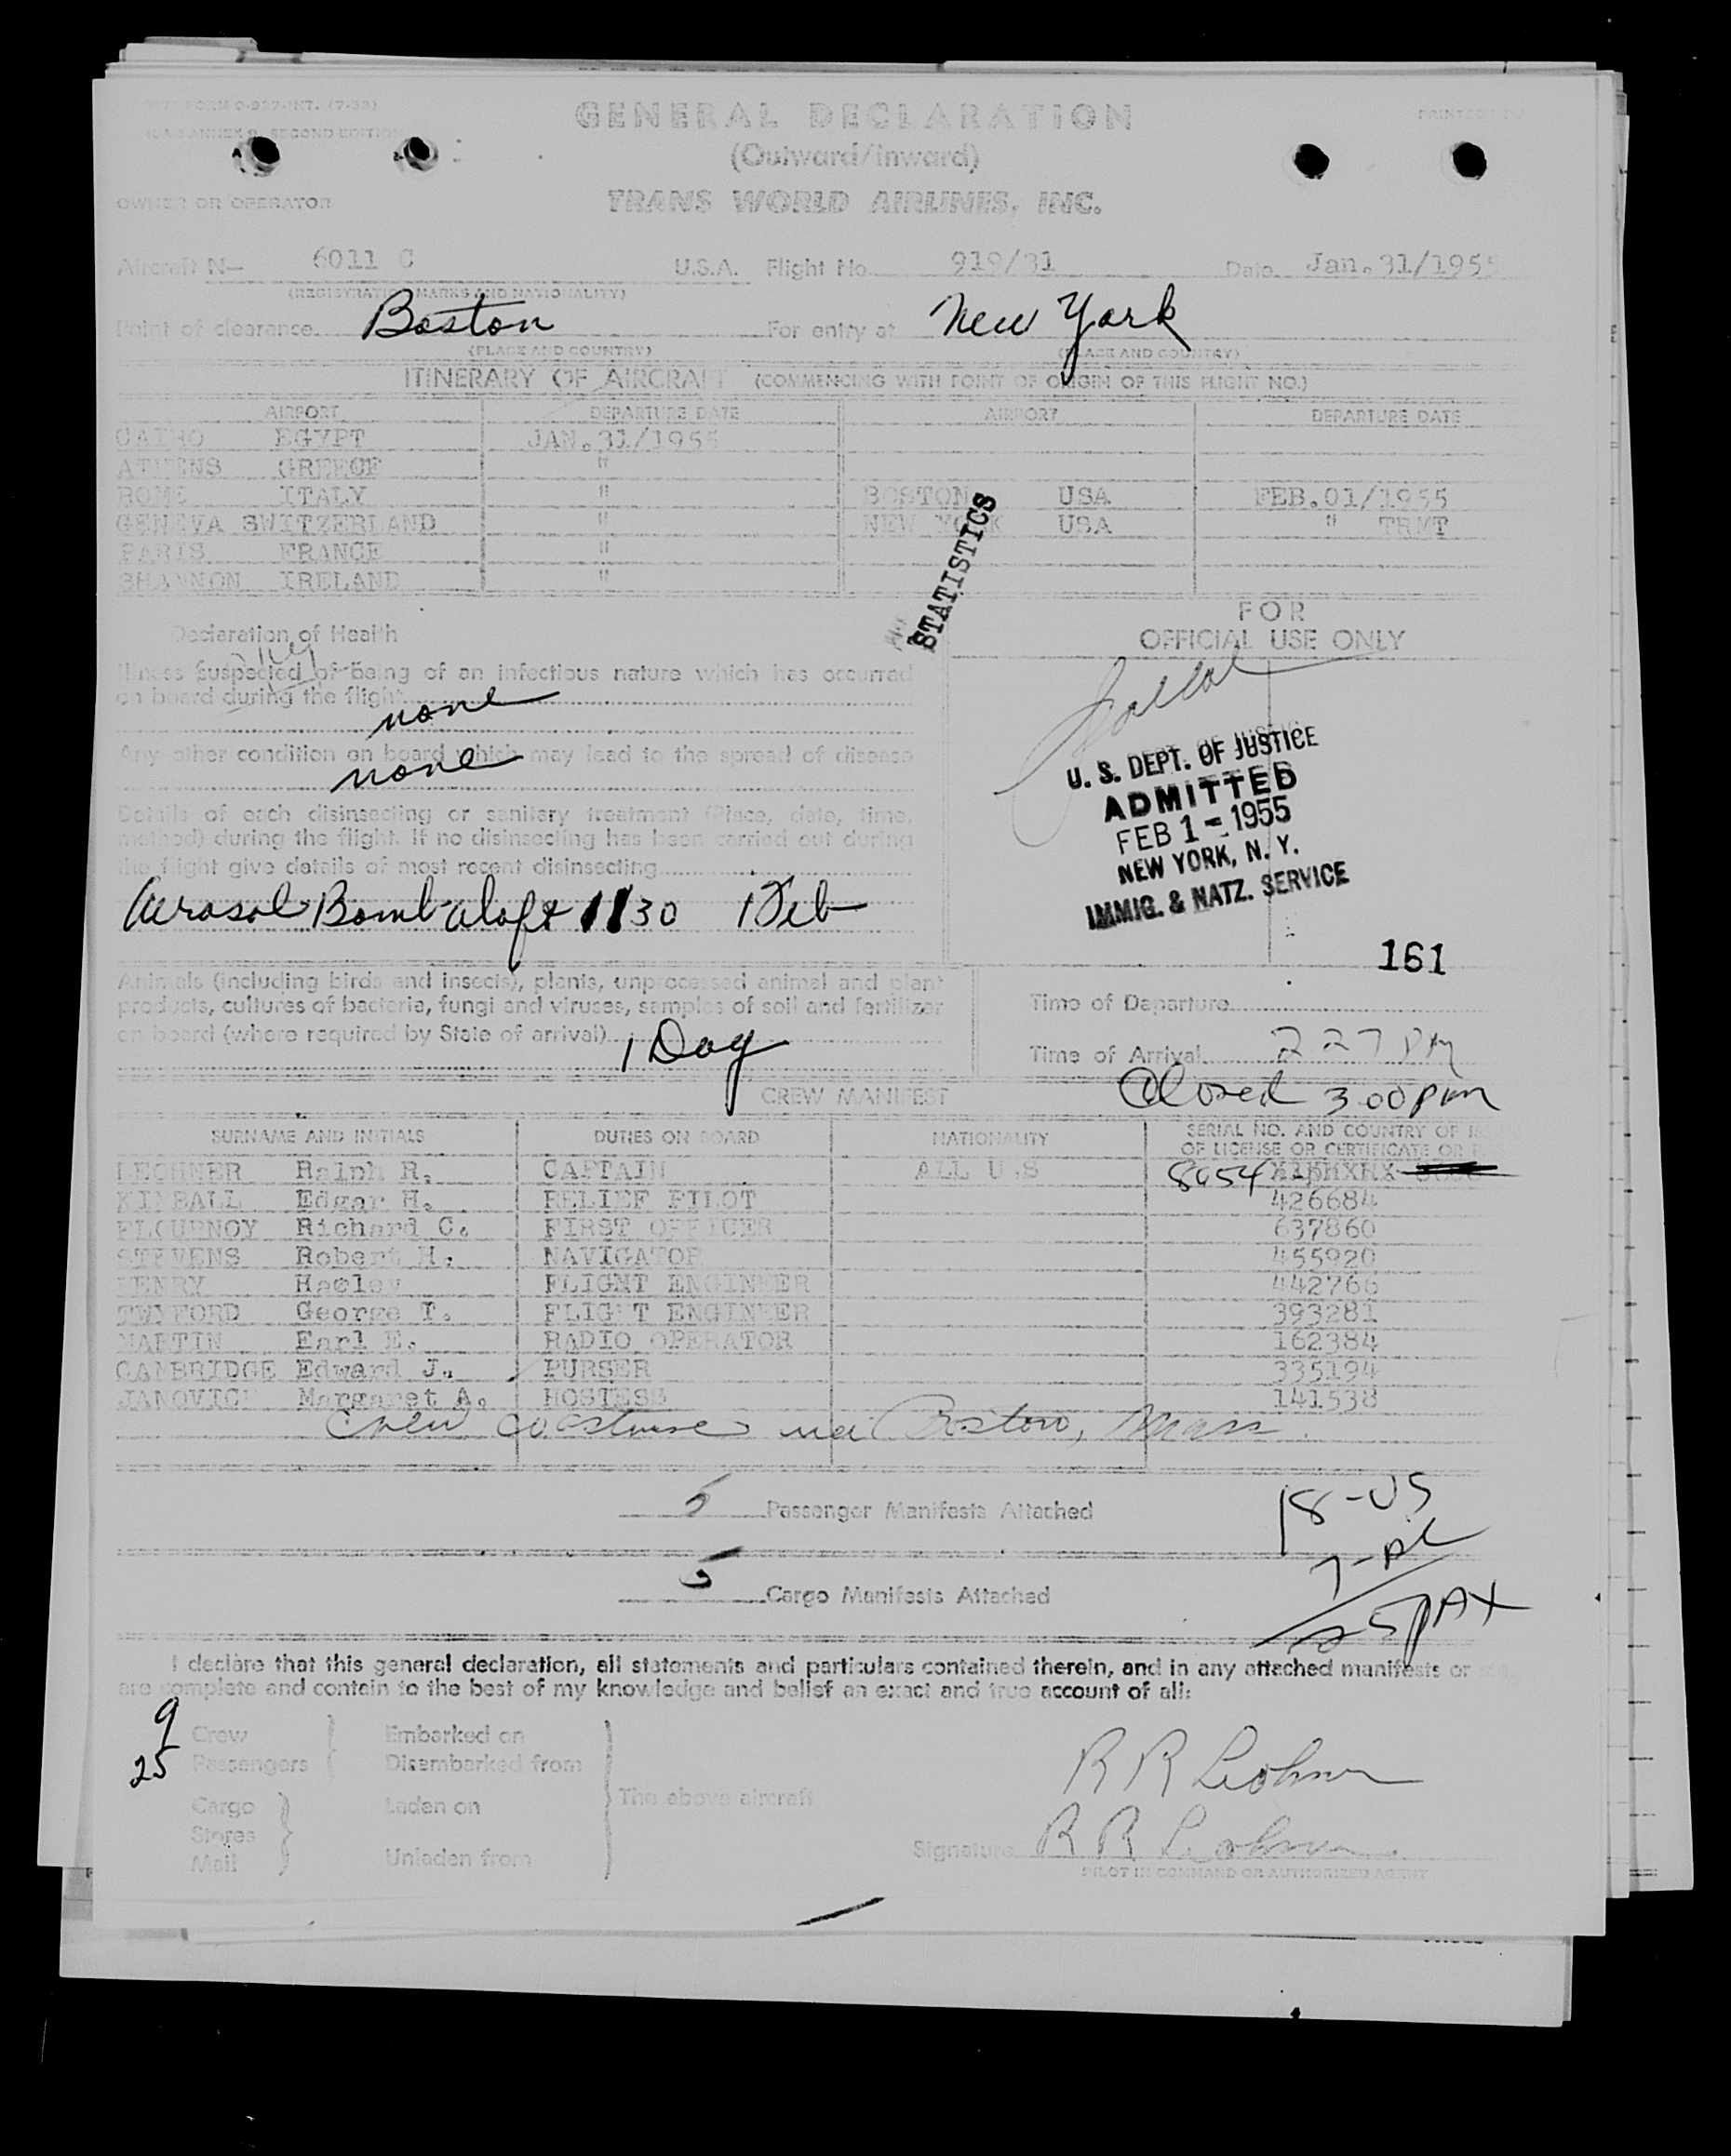 GENERAL DECLARATION
(Outward/Inward)
OWNER OR OPERATOR
TRANS WORLD AIRLINES, INC.
Aircraft N— 6011 C U.S.A. Flight No. 919/31 Date Jan.31/1955
(REGISTRATION MARKS AND NATIONALITY)
Point of clearance Boston For entry at New York
(PLACE AND COUNTRY) (PLACE AND COUNTRY)
ITINERARY OF AIRCRAFT (COMMENCING WITH POINT OF ORIGIN OF THIS FLIGHT NO.)
AIRPORT DEPARTURE DATE AIRPORT DEPARTURE DATE
CAIRO EGYPT JAN.31/1955
ATHENS GREECE "
ROME ITALY " BOSTON USA FEB.01/1955
GENEVA SWITZERLAND " NEW YORK USA " TRMT
PARIS FRANCE "
SHANNON IRELAND "
STATISTICS
FOR
OFFICIAL USE ONLY
Declaration of Health
Illness suspected of being of an infectious nature which has occurred
on board during the flight
none
Any other condition on board which may lead to the spread of disease
none
Details of each disinsecting or sanitary treatment (Place, date, time,
method) during the flight. If no disinsecting has been carried out during
the flight give details of most recent disinsecting
Aerosol Bomb aloft 1130 1 Feb
U. S. DEPT. OF JUSTICE
ADMITTED
FEB 1 - 1955
NEW YORK, N. Y.
IMMIG. & NATZ. SERVICE
161
Animals (including birds and insects), plants, unprocessed animal and plant
products, cultures of bacteria, fungi and viruses, samples of soil and fertilizer
on board (where required by State of arrival)
1 Dog
Time of Departure
Time of Arrival 2 27 PM
Closed 3.00 pm
CREW MANIFEST
SURNAME AND INITIALS DUTIES ON BOARD NATIONALITY SERIAL NO. AND COUNTRY OF
OF LICENSE OR CERTIFICATE OR
LECHNER Ralph R. CAPTAIN ALL U.S 8054
KIMBALL Edgar H. RELIEF PILOT 426684
FLOURNOY Richard C. FIRST OFFICER 637860
STEVENS Robert H. NAVIGATOR 455920
HENRY FLIGHT ENGINEER 442766
George T. FLIGHT ENGINEER 393281
MARTIN Earl E. RADIO OPERATOR 162384
CAMBRIDGE Edward J. PURSER 335194
JANOVICH Margaret A. HOSTESS 141538
Crew coastwise via Boston, Mass.
5 Passenger Manifests Attached
18-US
5 Cargo Manifests Attached
7-AL
25 PAX
I declare that this general declaration, all statements and particulars contained therein, and in any attached manifests or
are complete and contain to the best of my knowledge and belief an exact and true account of all:
9 Crew Embarked on
25 Passengers Disembarked from
The above aircraft
Cargo Laden on
Stores
Mail Unladen from
R R Lechner
Signature R R Lechner
PILOT IN COMMAND OR AUTHORIZED AGENT